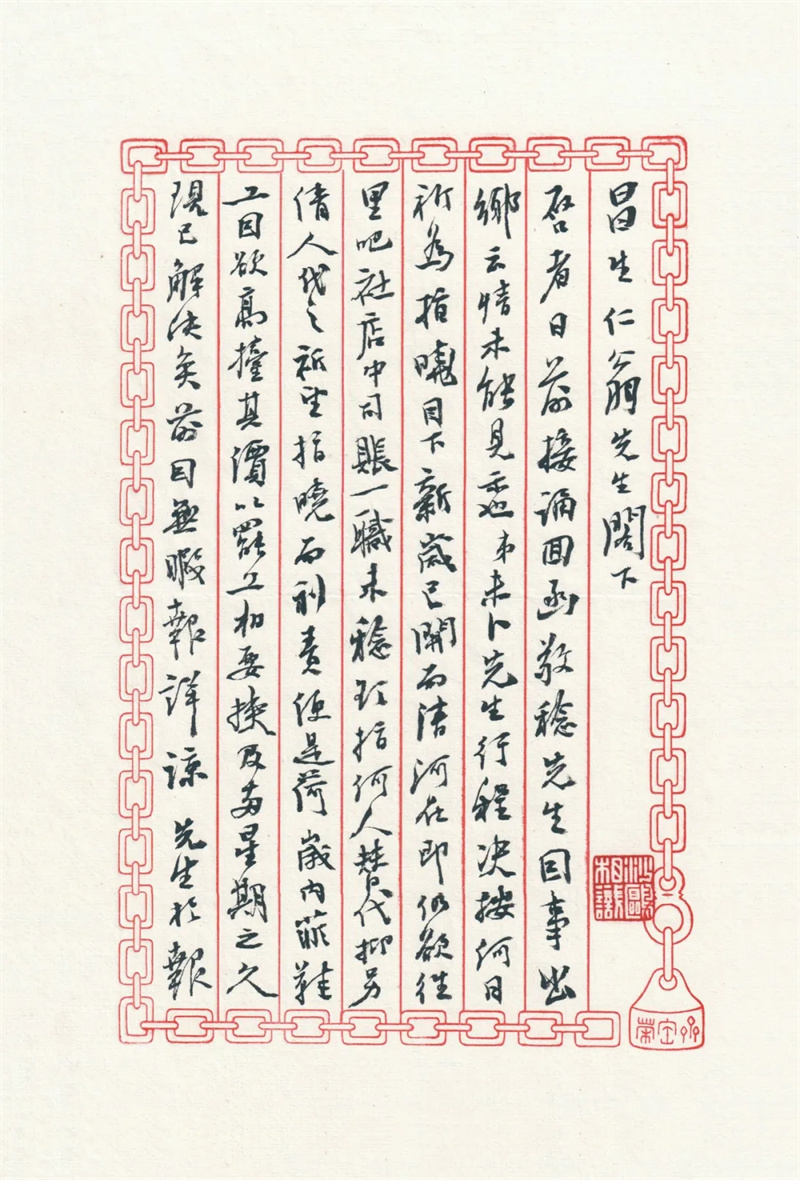 昌生仁翁先生閣下
啓者日前接誦回函敬稔先生因事出
鄉云情未能見晤弟未卜先生行程決擇何日
祈為指曉目下新歲已開而清河在即仍欲往
里吧社店中司賬一職未稔欲指何人替代抑另
倩人代之祈望指曉而利責便是荷歲內菲鞋
工因欲高擡其價以罷工相要挾及至星期之久
現已解決矣前因無暇報詳諒先生於報
沙鷗相識
榮宝斋